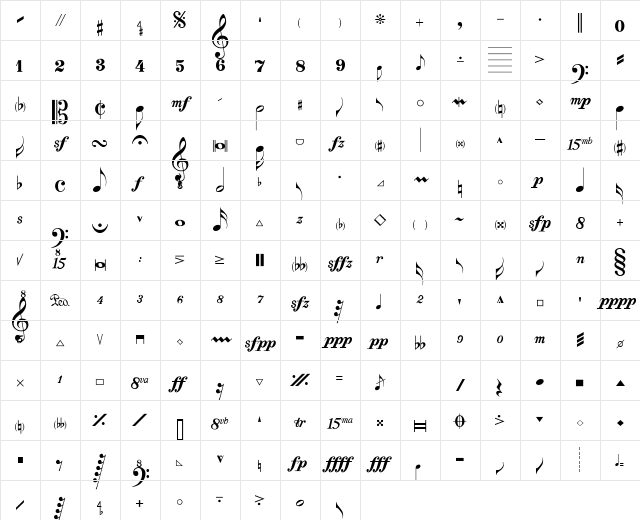 ( ) + 0
1 2 3 4 5 6 7 8 9 >
(♭) ¢ mf ♯ (♮) mp
sf fz (♯) 15mb (♯)
♭ c f 8 ♭ ♮ p
s v z (♭) ( ) ~ sfp 8 +
8 15 : (♭♭) sffz r n §
8 Ped. 4 3 6 8 7 sfz 2 ' pppp
5 sfpp ppp pp ♭♭ 9 0 m
× 1 8va ff =
(♮) (♭♭) 8vb tr 15ma
8 ♮ fp ffff fff
+